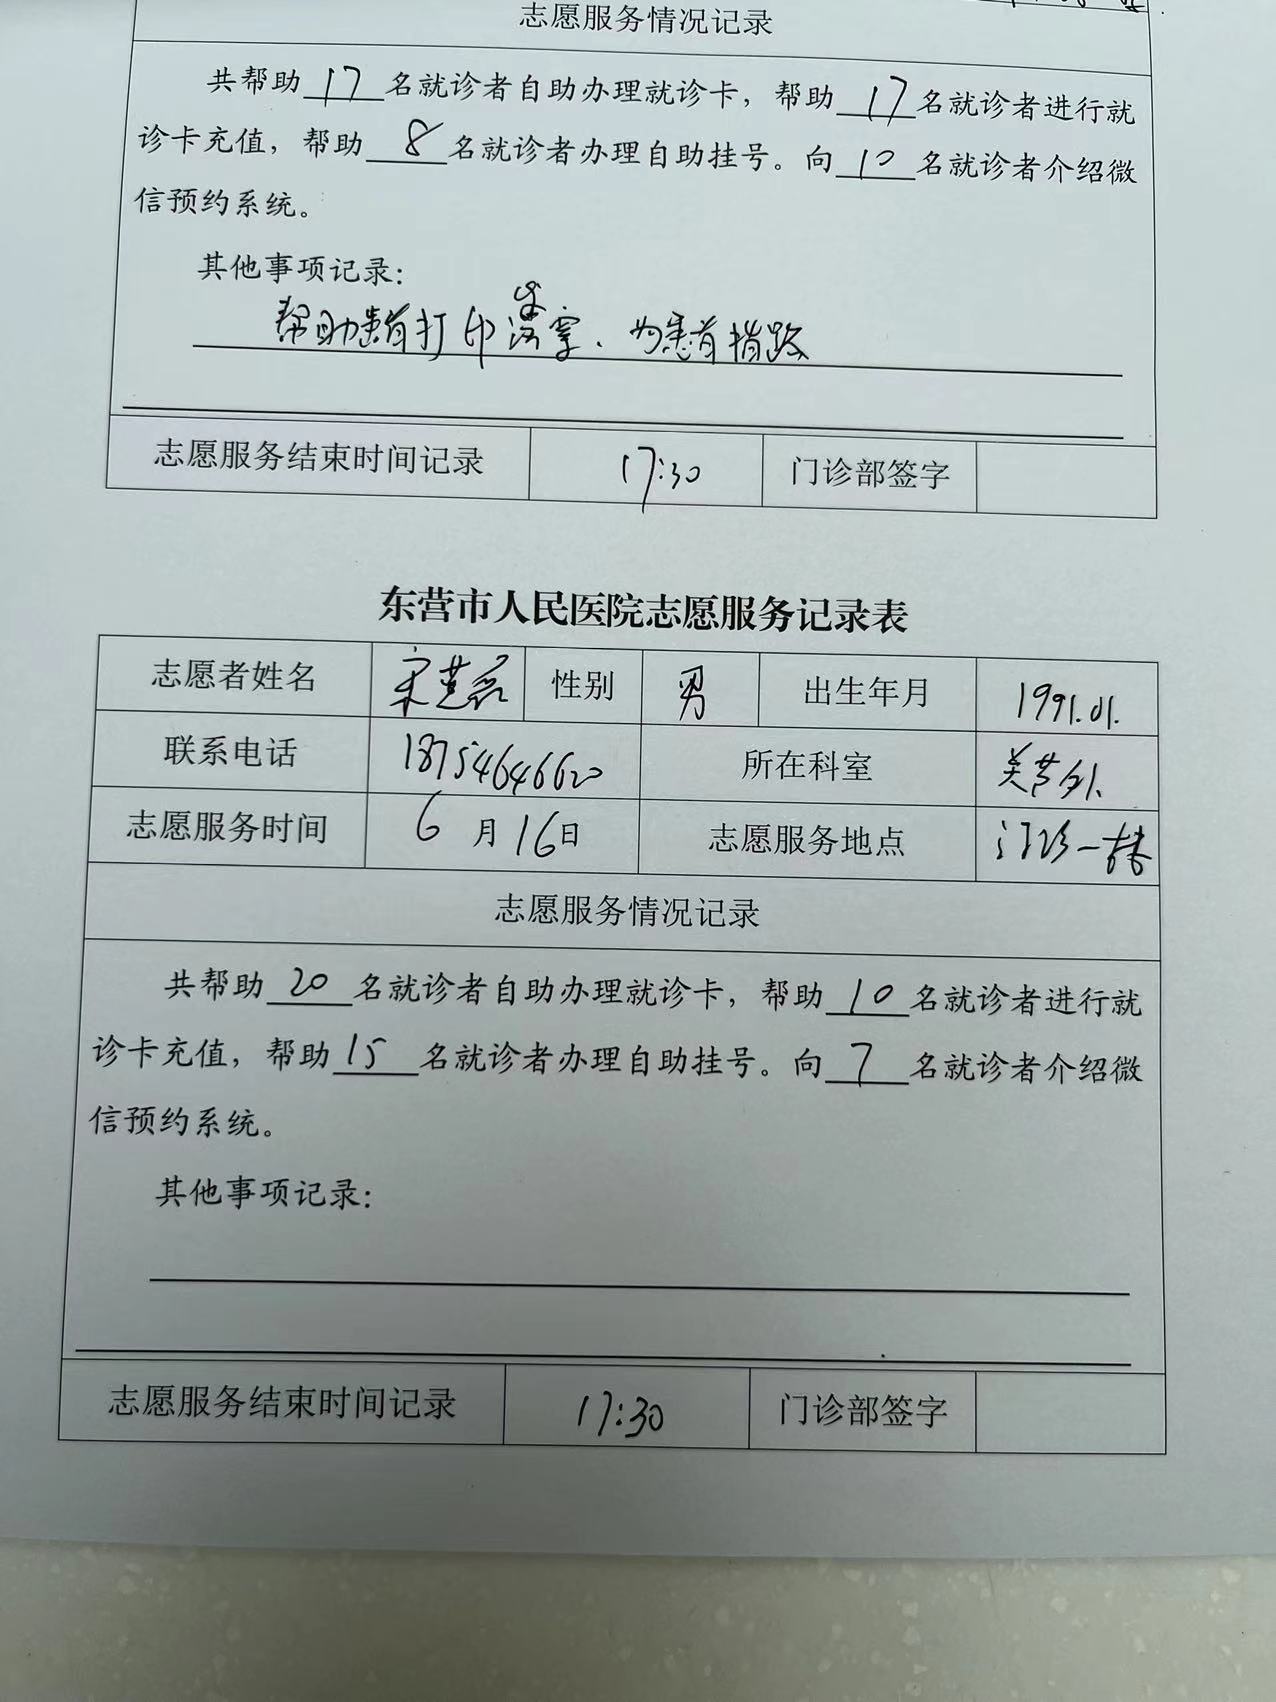 志愿服务情况记录
共帮助17名就诊者自助办理就诊卡，帮助17名就诊者进行就
诊卡充值，帮助8名就诊者办理自助挂号。向10名就诊者介绍微
信预约系统。
其他事项记录：
帮助患者打印 、为患者指路
志愿服务结束时间记录 17:30 门诊部签字
东营市人民医院志愿服务记录表
志愿者姓名 宋 性别 男 出生年月 1991.01.
联系电话 18754646620 所在科室 关节外
志愿服务时间 6月16日 志愿服务地点 门诊一楼
志愿服务情况记录
共帮助20名就诊者自助办理就诊卡，帮助10名就诊者进行就
诊卡充值，帮助15名就诊者办理自助挂号。向7名就诊者介绍微
信预约系统。
其他事项记录：
志愿服务结束时间记录 17:30 门诊部签字